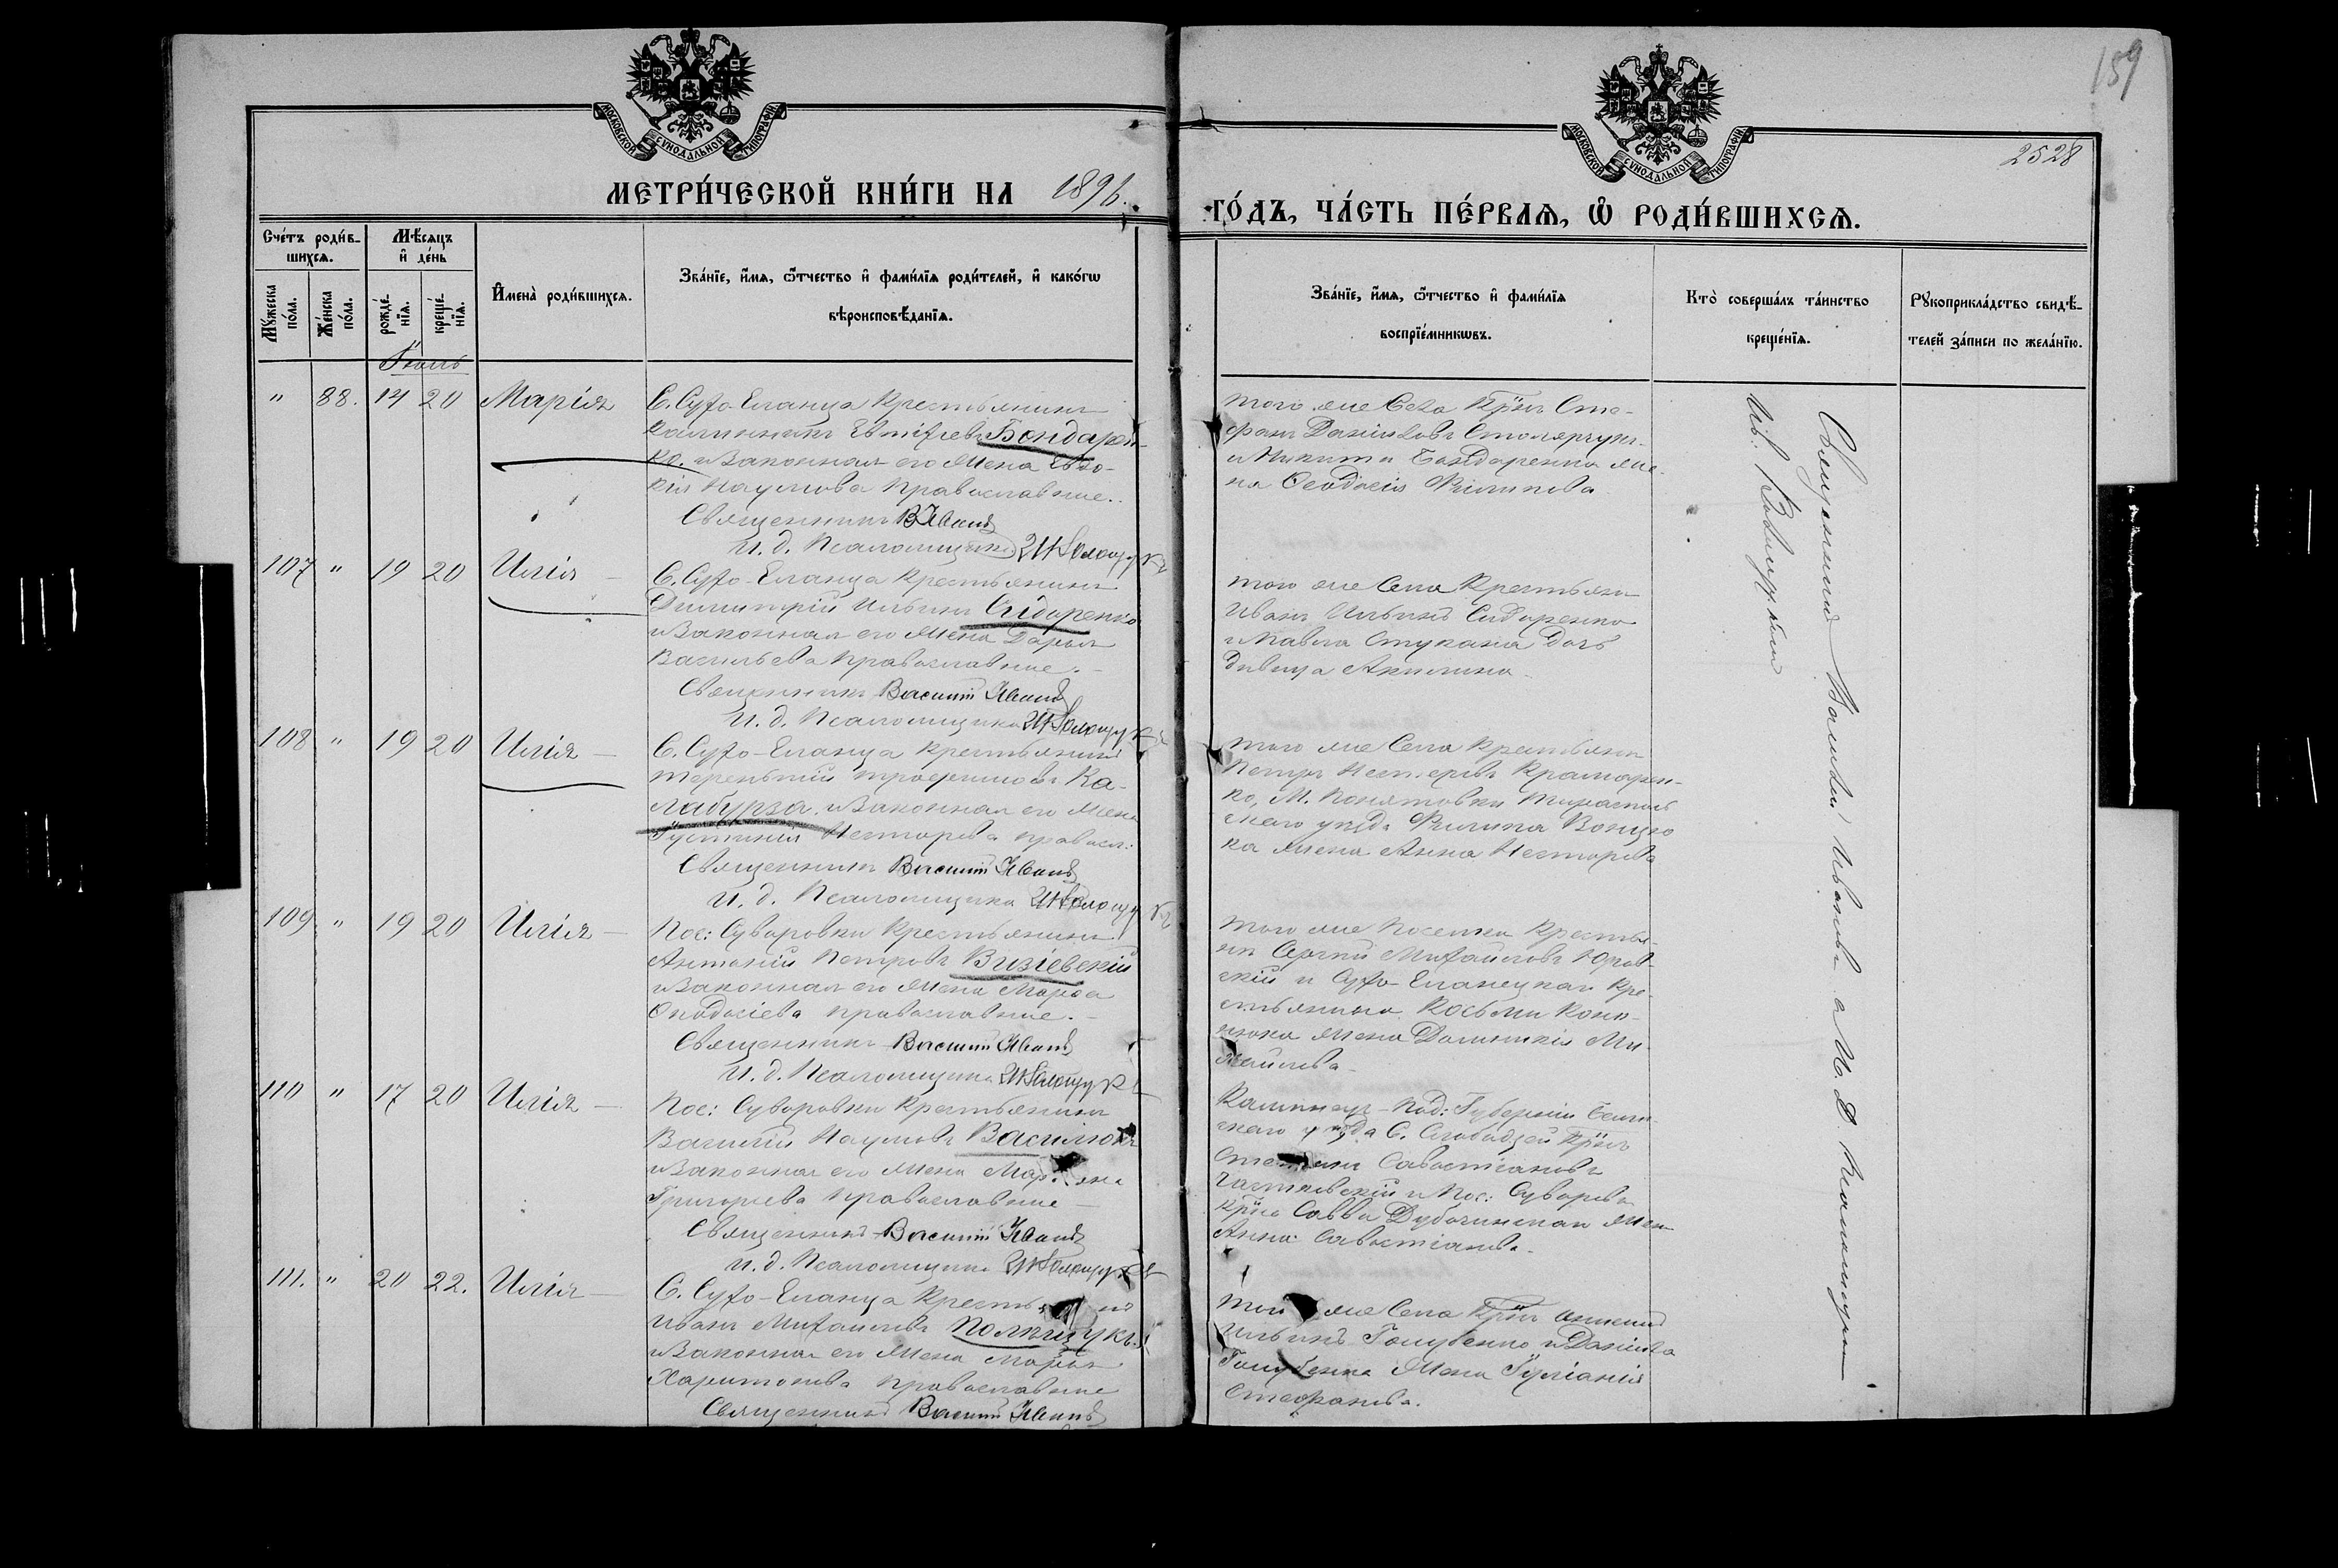 159
2528
МОСКОВСКОЙ СѴНОДАЛЬНОЙ ТИПОГРАФІИ
МОСКОВСКОЙ СѴНОДАЛЬНОЙ ТИПОГРАФІИ
МЕТРИ́ЧЕСКОЙ КНИ́ГИ НА 1896.
ГО́ДЪ, ЧА́СТЬ ПЕ́РВАѦ, Ѡ҆ РОДИ́ВШИХСѦ.
Сче́тъ роди́в-
шихсѧ.
Мѣ́сѧцъ
и҆ де́нь
Мꙋ́жеска по́ла.
Же́нска по́ла.
рожде́-
нїѧ.
креще́-
нїѧ.
И҆мена̀ роди́вшихсѧ.
Зва́нїе, и҆́мѧ, ѻ҆́тчество и҆ фами́лїѧ роди́телей, и҆ како́гѡ
вѣроисповѣ́данїѧ.
Зва́нїе, и҆́мѧ, ѻ҆́тчество и҆ фами́лїѧ
воспрїе́мникѡвъ.
Кто̀ соверша́лъ та́инство
креще́нїѧ.
Рꙋкоприкла́дство свидѣ́-
телей за́писи по жела́нїю.
Іюль
" 88. 14 20 Марія
С. Сухо-Еланца Крестьянинъ
Каллиникъ Евтихіевъ Бондарен-
ко и законная его жена Евдо-
кія Наумова Православные.
Священникъ В Ивановъ
И. д. Псаломщика
того же Села Крн̃ъ Сте-
фанъ Даніиловъ Столярчукъ
и Никиты Бондаренка же-
на Ѳеодосія Филипова
107 " 19 20 Илія
С. Сухо-Еланца Крестьянинъ
Димитрій Ильинъ Сидоренко
и законная его жена Дарья
Васильева православные.
Священникъ Василій Ивановъ
И. д. Псаломщика
того же Села Крестьян
Иванъ Ильинъ Сидоренко
и Павла Стукана дочь
дѣвица Акилина
108 " 19 20 Илія
С. Сухо-Еланца крестьянинъ
Терентій Трофимовъ Ка-
лабурза и законная его жена
Іустинія Несторова правосл:
Священникъ Василій Ивановъ
И. д. Псаломщика
того же Села крестьян
Петръ Нестеровъ Крамарен-
ко, М. Понятовки Тирасполь
скаго уѣзда Филипа
ка жена Анна Несторова
109 " 19 20 Илія
Пос: Суворовки Крестьянинъ
Антоній Петровъ Визіевскій
и законная его жена Марѳа
Ѳеодосіева православные.
Священникъ Василій Ивановъ
И. д. Псаломщика
того же поселка Крестья-
нъ Сергій Михайловъ Юров-
скій и Сухо-Еланецкаго Кре-
стьянина Косьмы Коно-
жена Домникія Ми-
хайлова
110 " 17 20 Илія
Пос: Суворовки Крестьянинъ
Василій Наумовъ Василюкъ
и законная его жена
Григорьева Православные
Священникъ Василій Ивановъ
И. д. Псаломщика
Каменец-Под: Губерніи
скаго уѣзда С. Слободзеи Крн̃ъ
Савастіановъ
и Пос: Суворовк
Крн̃а Саввы жен
Анна Савастіанова.
111. " 20 22. Илія
С. Сухо-Еланца
Иванъ Михайловъ Полищукъ
и законная его жена Марья
Харитонова православные
Священникъ Василій Ивановъ
того же Села Крн̃ъ
Ильинъ Голубенко и Даніила
Голубенка жена Іуліанія
Стефанова.
Священникъ Василій Ивановъ и И. Д. Псаломщика